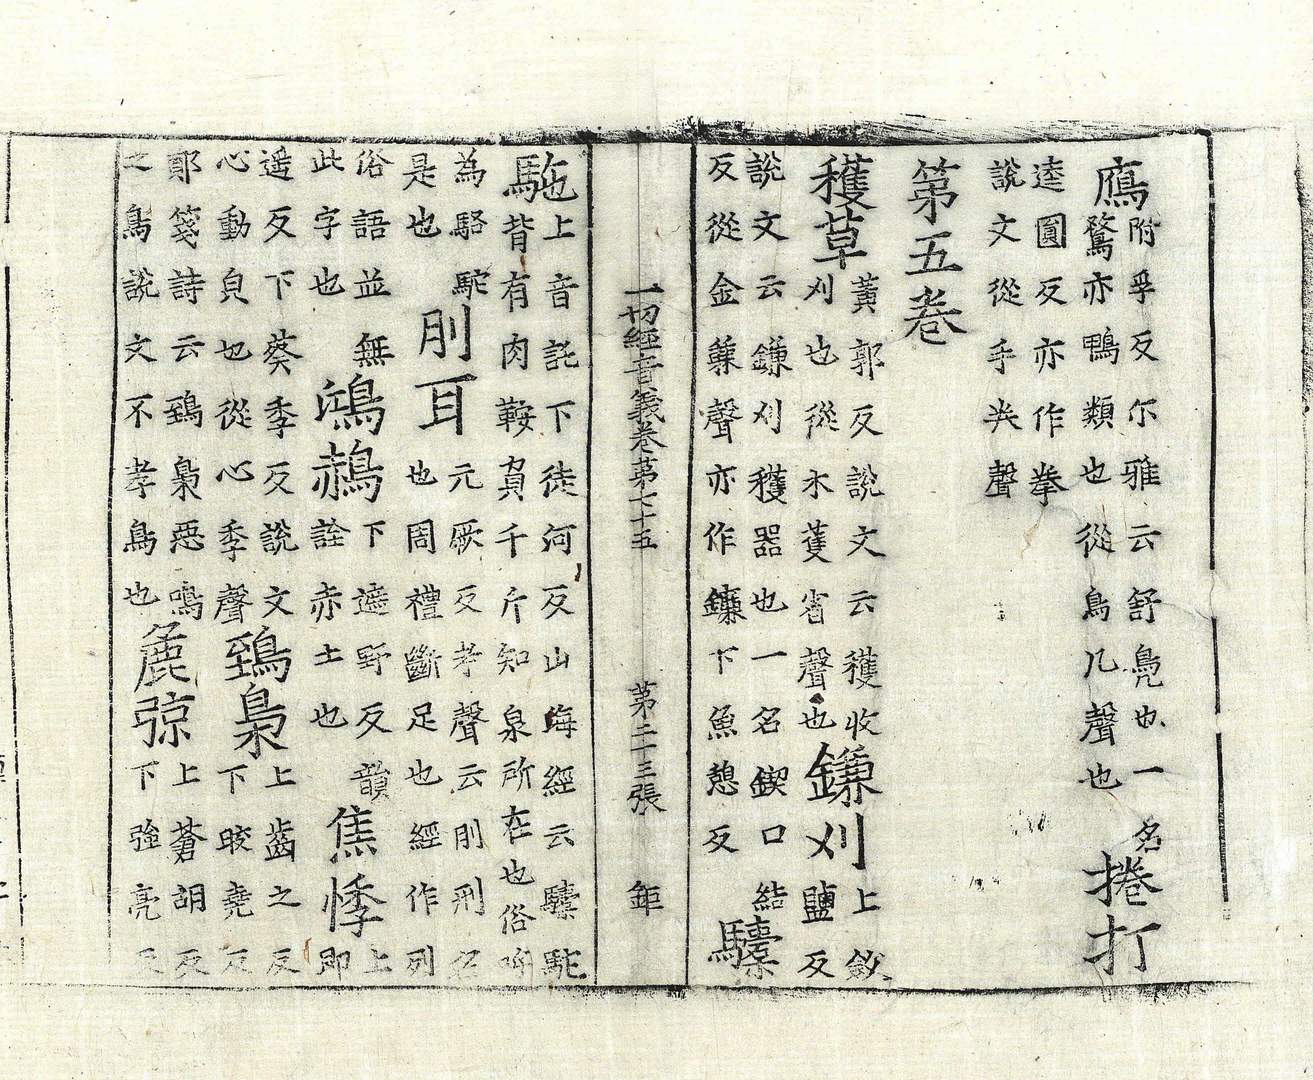 鴈附孚反尒雅云舒鳧也一名
鶩亦鴨類也從鳥几聲也捲打
逵圓反亦作拳
說文從手𢍏聲
第五卷
穫草黃郭反說文云穫收
刈也從禾蒦省聲也鎌刈上斂
鹽反
說文云鎌刈穫器也一名鍥口結
反從金兼聲亦作鐮下魚憩反驝
一切經音義卷第七十五 第二十三張 鉅
駞上音託下徒河反山海經云驝駞
背有肉鞍負千斤知泉所在也俗呼
為駱駞
是也刖耳元厥反考聲云刖刑名
也周禮斷足也經作刵
俗語並無
此字也鴻鷮下遮野反韻
詮赤土也焦悸上
即
遥反下葵季反說文
心動皃也從心季聲鵄梟上齒之反
下皎堯反
鄭箋詩云鵄梟惡鳴
之鳥說文不孝鳥也麁弶上蒼胡反
下強亮反